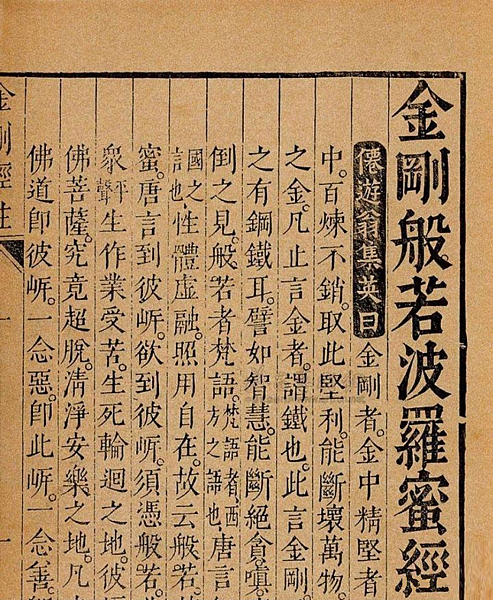 金剛般若波羅蜜經
僊遊翁集英曰金剛者。金中精堅者
中。百煉不銷。取此堅利。能斷壞萬物。
之金。凡止言金者。謂鐵也。此言金剛。
之有鋼鐵耳。譬如智慧。能斷絕貪嗔。
倒之見。般若者梵語。梵語者。西方之語也。唐言
國之言也。性體虛融。照用自在。故云般若。
蜜。唐言到彼岸。欲到彼岸。須憑般若。
衆平聲生作業受苦。生死輪迴之地。彼
佛菩薩。究竟超脫。清淨安樂之地。凡
佛道即彼岸。一念惡。即此岸。一念善。
金剛經註 一